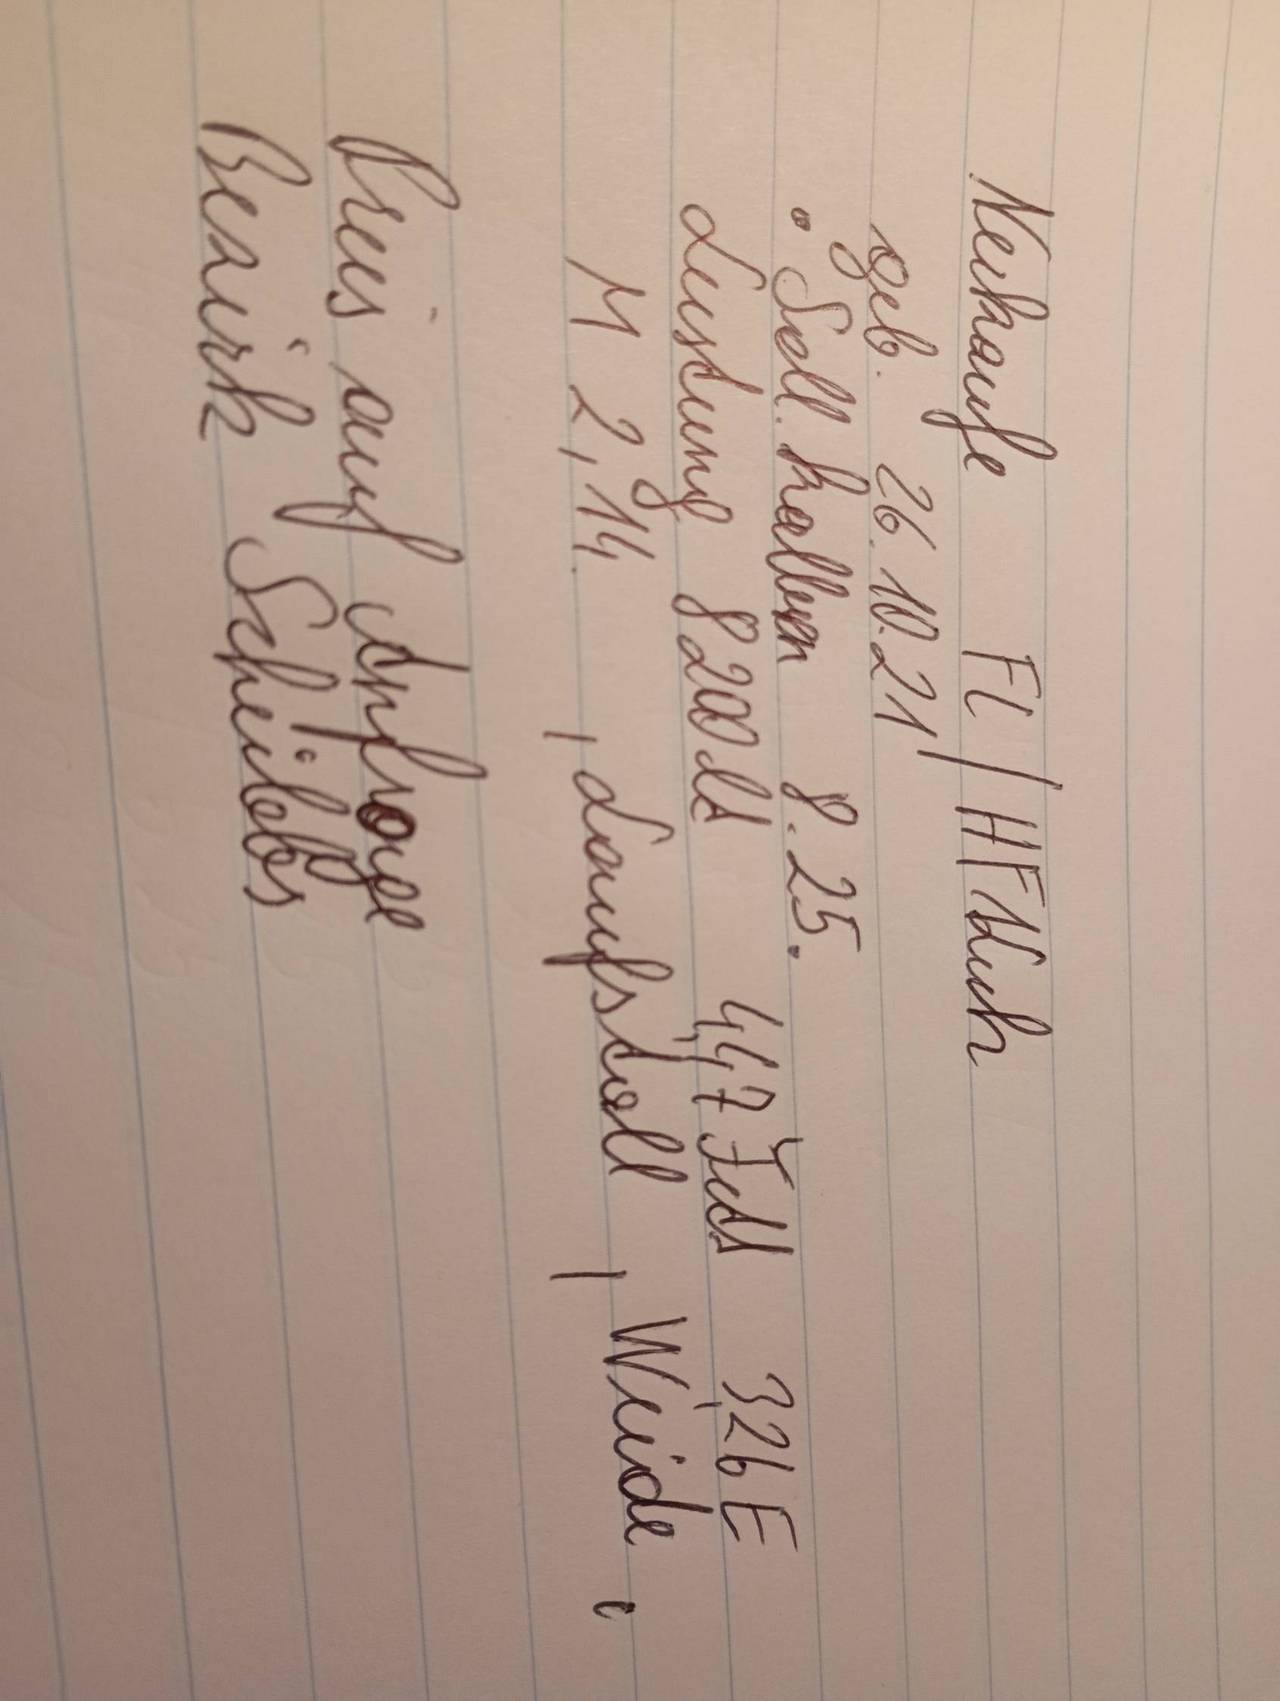 Verkaufe Fl/HF Kuh
geb. 26.10.21
. Soll. kalben 8.25.
Leistung 8200 lt 4,47 Fett 3,26 E
M 2,14. , Laufstall , Weide ,
Preis auf Anfrage
Bezirk Scheibbs